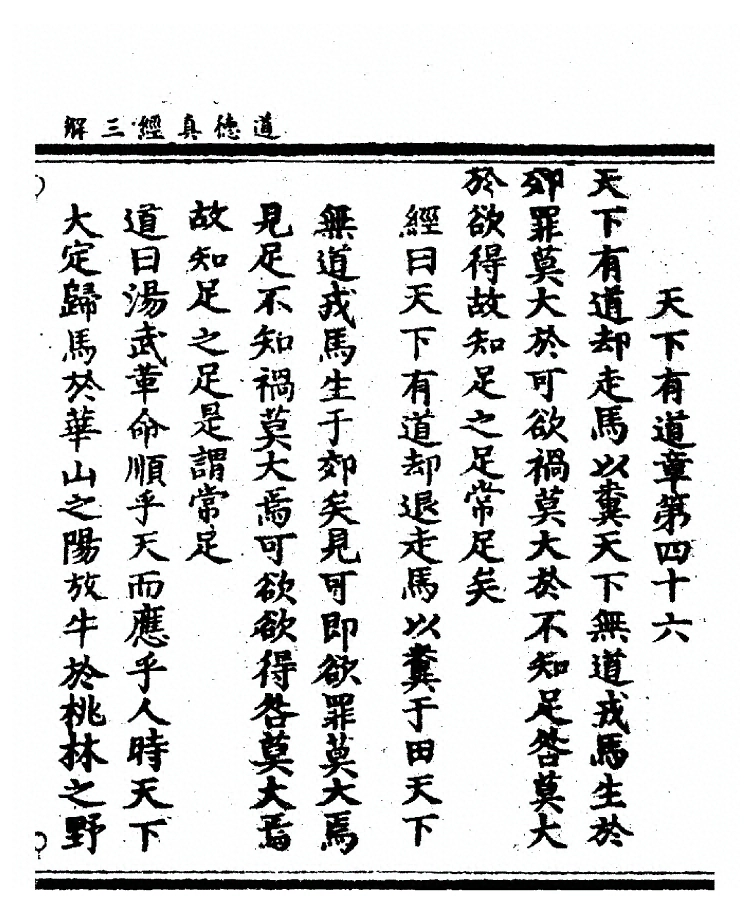 道德真經三解
天下有道章第四十六
天下有道却走馬以糞天下無道戎馬生於
郊罪莫大於可欲禍莫大於不知足咎莫大
於欲得故知足之足常足矣
經曰天下有道却退走馬以糞于田天下
無道戎馬生于郊矣見可即欲罪莫大焉
見足不知禍莫大焉可欲欲得咎莫大焉
故知足之足是謂常足
道曰湯武革命順乎天而應乎人時天下
大定歸馬於華山之陽放牛於桃林之野